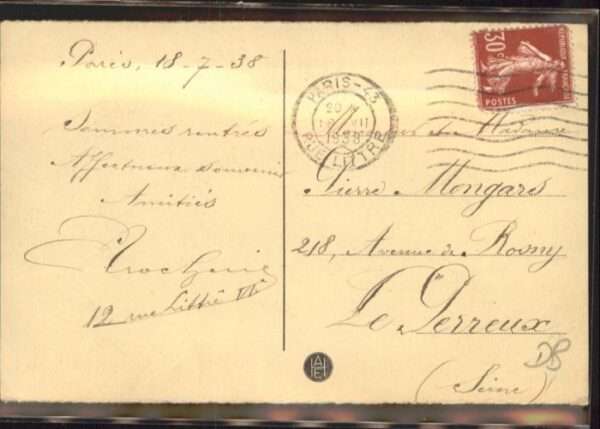 Paris, 18-7-38
Sommes rentrés
Affectueux souvenir
Amitiés
12 rue Littré VIe
PARIS-43
1938
RUE LITTRÉ
REPUBLIQUE FRANÇAISE
30c
POSTES
et Madame
Pierre Mongars
218, Avenue de Rosny
Le Perreux
(Seine)
DB